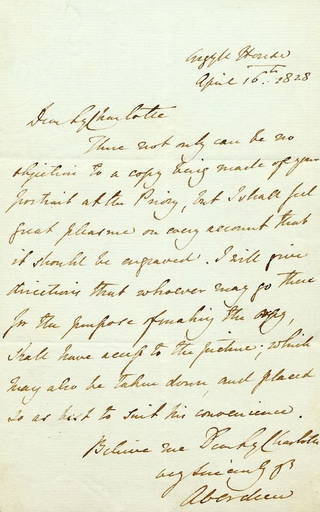 Argyll House
April 16th. 1828
Dear Ly Charlotte
There not only can be no
objection to a copy being made of your
Portrait at the Priory, but I shall feel
great pleasure on every account that
it should be engraved. I will give
directions that whoever may go there
for the purpose of making the copy,
shall have access to the picture; which
may also be taken down, and placed
so as best to suit his convenience.
Believe me Dear Ly Charlotte
very sincerely yrs
Aberdeen